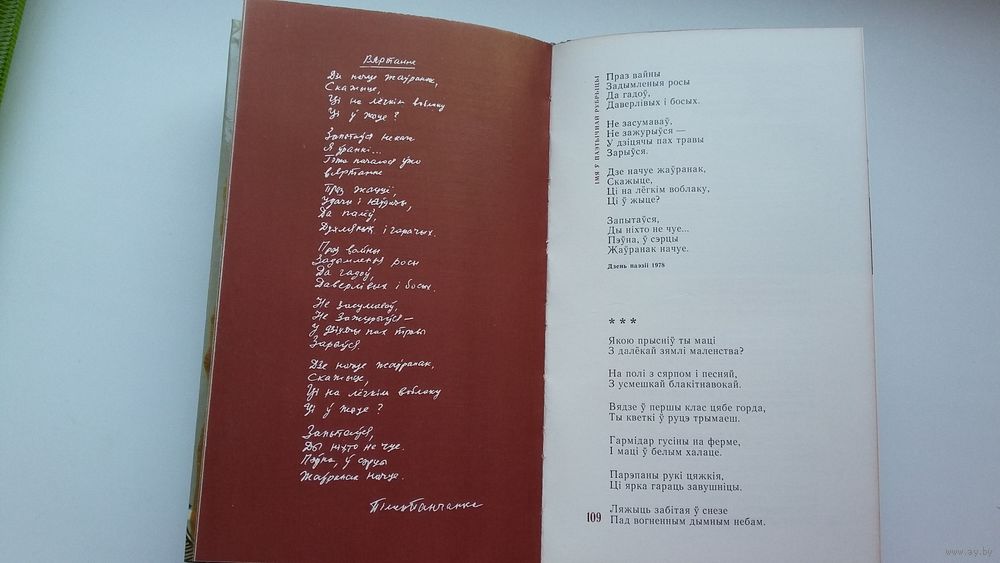 Вяртанне
Дзе начуе жаўранак,
Скажыце,
Ці на лёгкім воблаку
Ці ў жыце?
Запытаўся неяк
Я ўранкі...
Гэта пачалося ўжо
вяртанне
Праз жыцці,
Удачы і няўдачы,
Да палёў,
Духмяных і гарачых.
Праз войны
Задымленыя росы
Да гадоў,
Даверлівых і босых.
Не засумаваў,
Не зажурыўся —
У дзіцячы пах травы
Зарыўся.
Дзе начуе жаўранак,
Скажыце,
Ці на лёгкім воблаку
Ці ў жыце?
Запытаўся,
Ды ніхто не чуе.
Пэўна, ў сэрцы
Жаўранак начуе.
Пімен Панчанка
ІМЯ Ў ПАЭТЫЧНАЙ РУБРЫЦЫ
Праз вайны
Задымленыя росы
Да гадоў,
Даверлівых і босых.
Не засумаваў,
Не зажурыўся —
У дзіцячы пах травы
Зарыўся.
Дзе начуе жаўранак,
Скажыце,
Ці на лёгкім воблаку,
Ці ў жыце?
Запытаўся,
Ды ніхто не чуе...
Пэўна, ў сэрцы
Жаўранак начуе.
Дзень паэзіі 1978
* * *
Якою прысніў ты маці
З далёкай зямлі маленства?
На полі з сярпом і песняй,
З усмешкай блакітнавокай.
Вядзе ў першы клас цябе горда,
Ты кветкі ў руцэ трымаеш.
Гармідар гусіны на ферме,
І маці ў белым халаце.
Парэпаны рукі цяжкія,
Ці ярка гараць завушніцы.
Ляжыць забітая ў снезе
Пад вогненным дымным небам.
109
www.ay.by